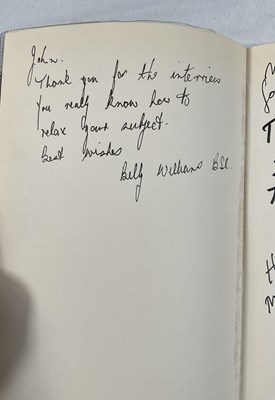 John.
Thank you for the interview
You really know how to
relax your subject.
Best wishes
Billy Williams BSC.